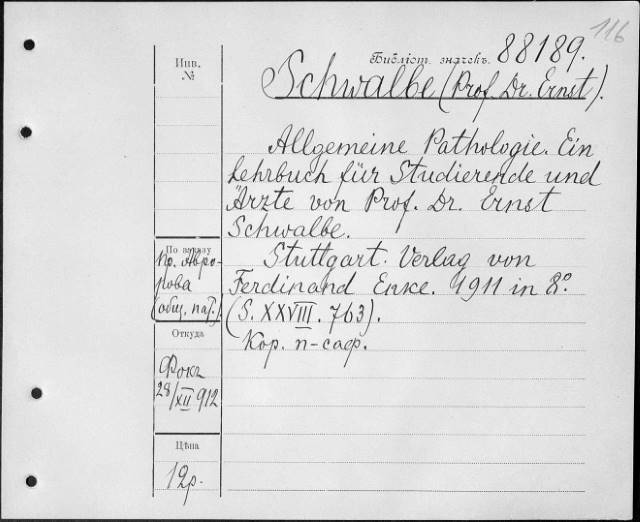 116
Библіот. значекъ. 88189.
Schwalbe (Prof. Dr. Ernst).
Инв.
№
Allgemeine Pathologie. Ein
Lehrbuch für Studierende und
Ärzte von Prof. Dr. Ernst
Schwalbe.
Stuttgart. Verlag von
Ferdinand Enke. 1911 in 8º.
(S. XXVIII. 763).
Кор. п-саф.
По заказу
пр. Авро-
рова
(общ. пат.)
Откуда
Фокъ
28/XII 912
Цѣна
12р.